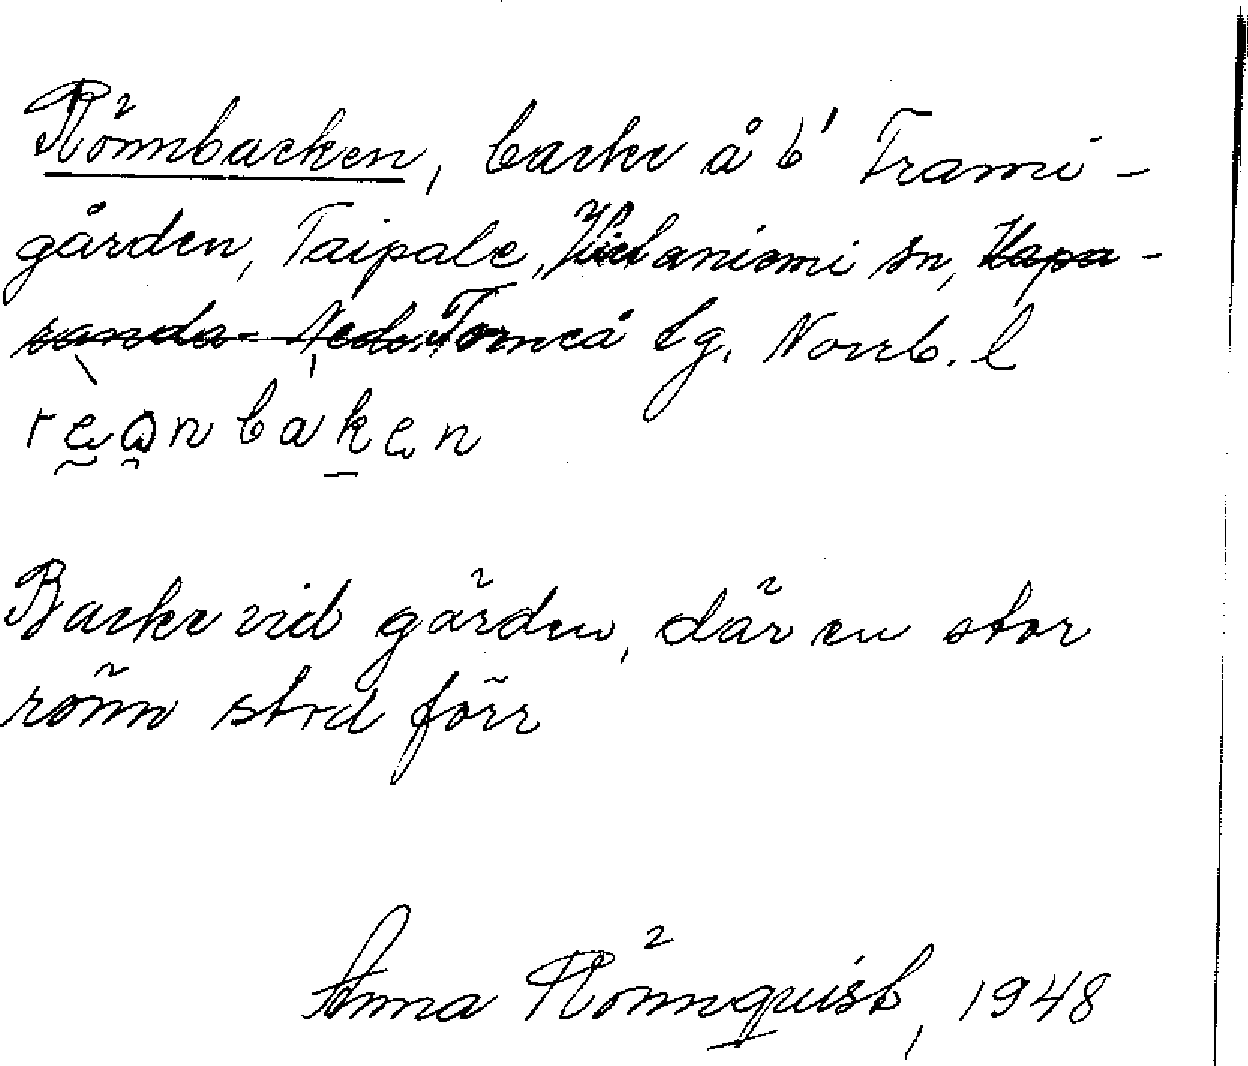 Rönnbacken, backe å b' Frami-
gården, Taipale, Hietaniemi sn, Hapa-
randa- Neder Torneå tg. Norrb. l
reanbaken
Backe vid gården, där en stor
rönn stod förr
Anna Rönnquist, 1948